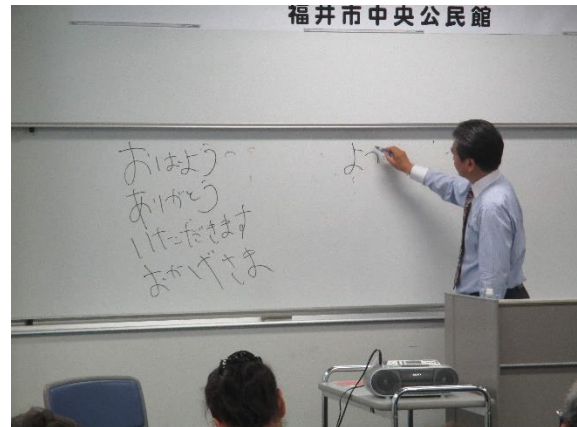 福井市中央公民館
おはよう
ありがとう
いただきます
おかげさま
よ